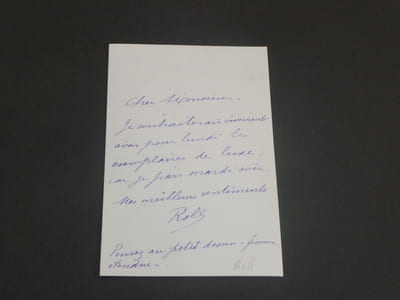 Cher Monsieur.
Je souhaiterais vivement
avoir pour lundi les
exemplaires de luxe.
car je pars mardi soir.
Mes meilleurs sentiments
Roll
Pensez au petit dessin - femme
étendue -
Roll